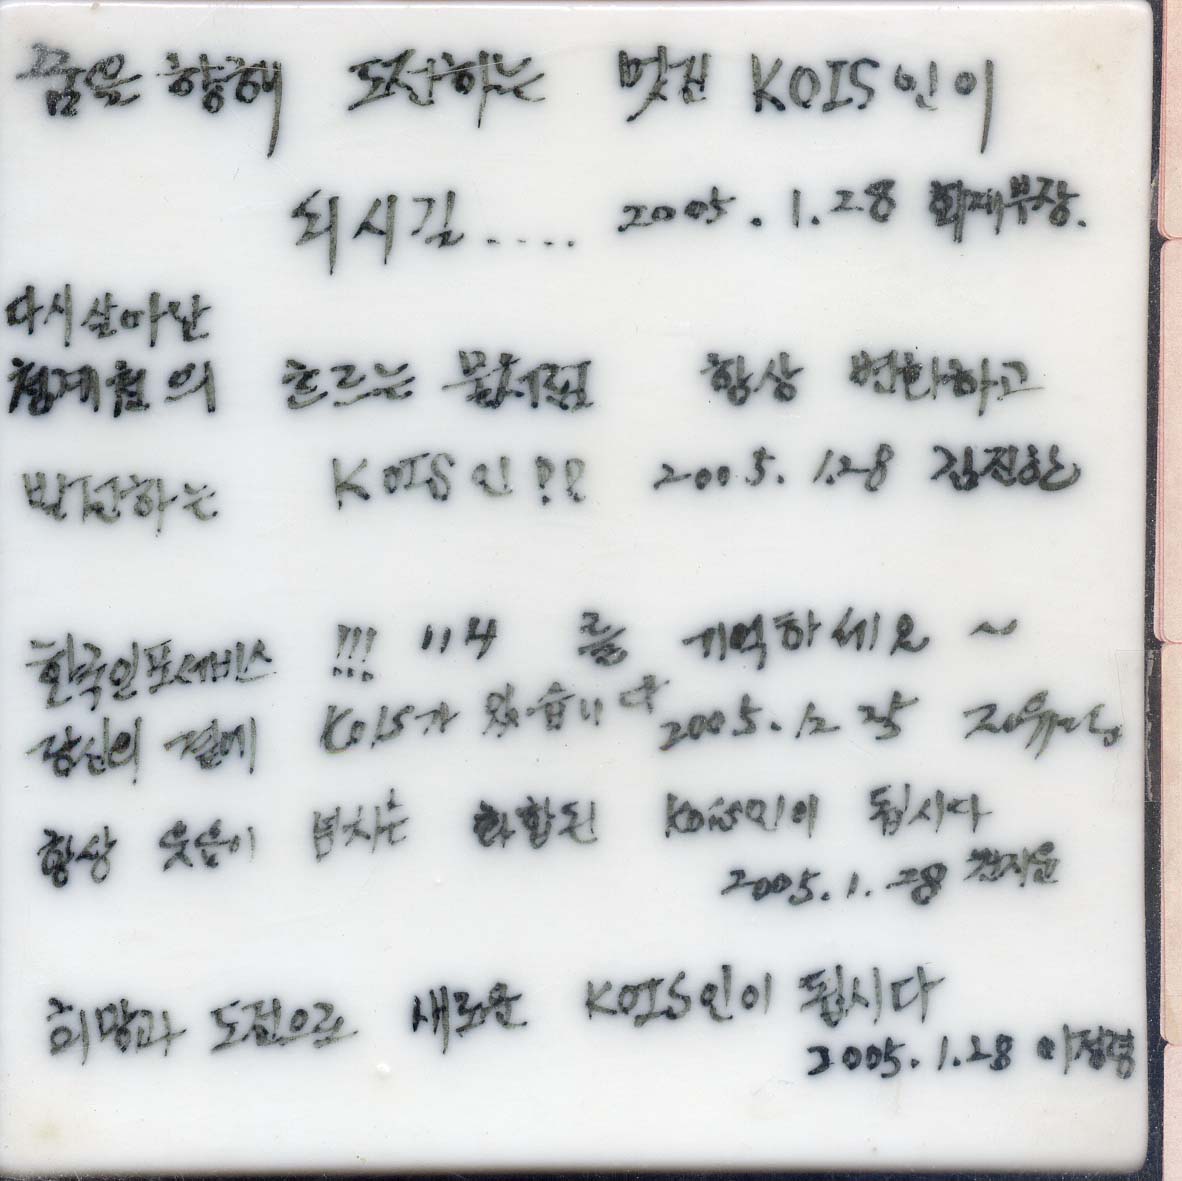 꿈을 향해 도전하는 멋진 KOIS인이
되시길..... 2005.1.28
다시살아난
청계천의 흐르는 물처럼 항상 변화하고
발전하는 KOIS인!! 2005.1.28
한국인포서비스 !!! 114 를 기억하세요~
당신의 곁에 KOIS가 있습니다 2005.1.
항상 웃음이 넘치는 화합된 KOIS인이 됩시다
2005.1.28
희망과 도전으로 새로운 KOIS인이 됩시다
2005.1.28 이정경